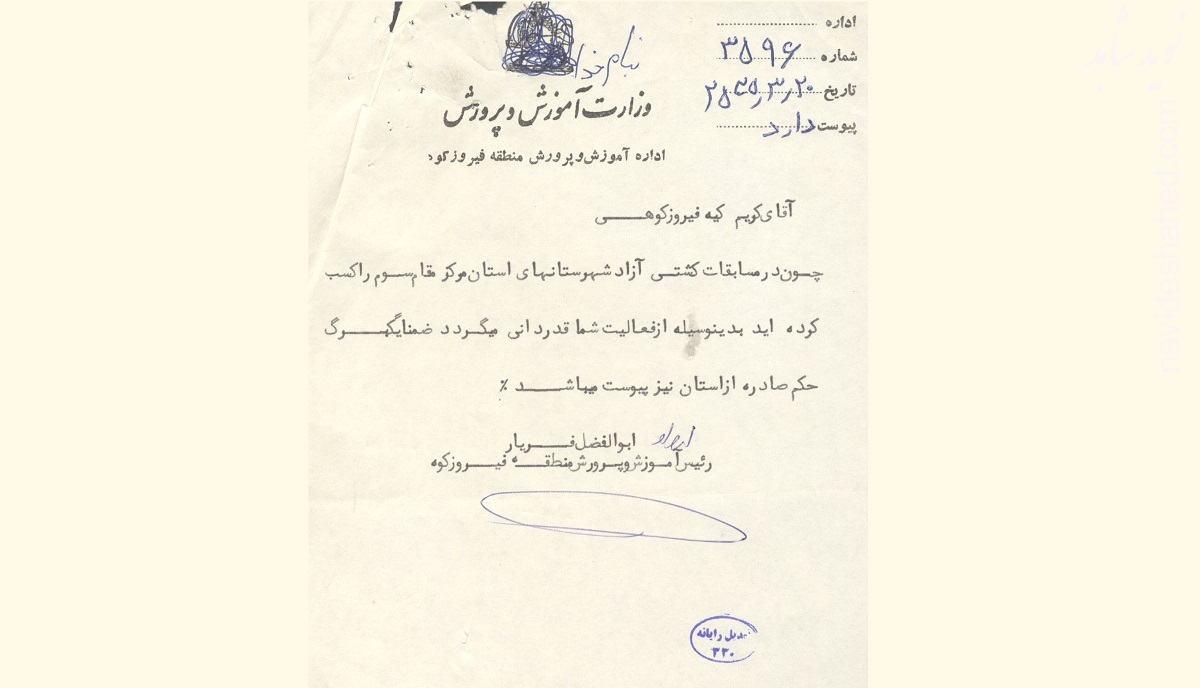 اداره
شماره ۳۵۹۶
تاریخ ۲۵۳۵/۳/۲۰
پیوست دارد
بنام خدا
وزارت آموزش و پرورش
اداره آموزش و پرورش منطقه فیروزکوه
آقای کریم کیه فیروزکوهی
چون در مسابقات کشتی آزاد شهرستانهای استان مرکز مقام سوم را کسب
کرده اید بدینوسیله از فعالیت شما قدردانی میگردد ضمنا یکبرگ
حکم صادره از استان نیز پیوست میباشد ٪
ابوالفضل فریار
رئیس آموزش و پرورش منطقه فیروزکوه
تبدیل رایانه
۲۲۰
نوید شاهد
navideshahed.com